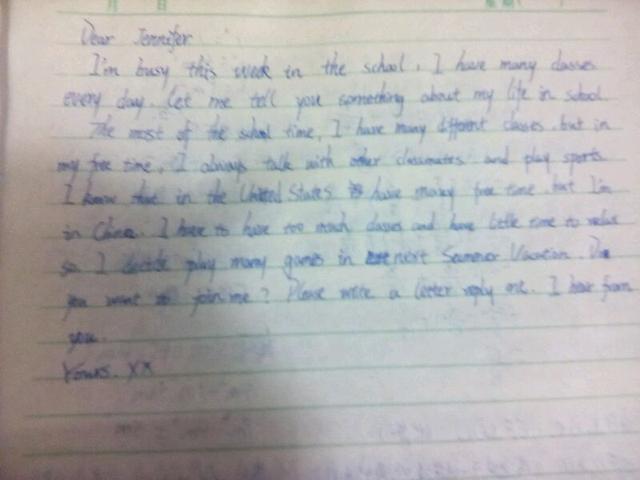 月 日 星期
Dear Jennifer
I'm busy this week in the school. I have many classes
every day. Let me tell you something about my life in school
The most of the school time, I have many different classes. but in
my free time, I always talk with other classmates and play sports
I know that in the United States have many free time. but I'm
in China. I have to have too much classes and have little time to relax
so I decide play many games in next Summer Vacation. Do
you want to join me? Please write a letter reply me. I hear from
you.
Yours. XX